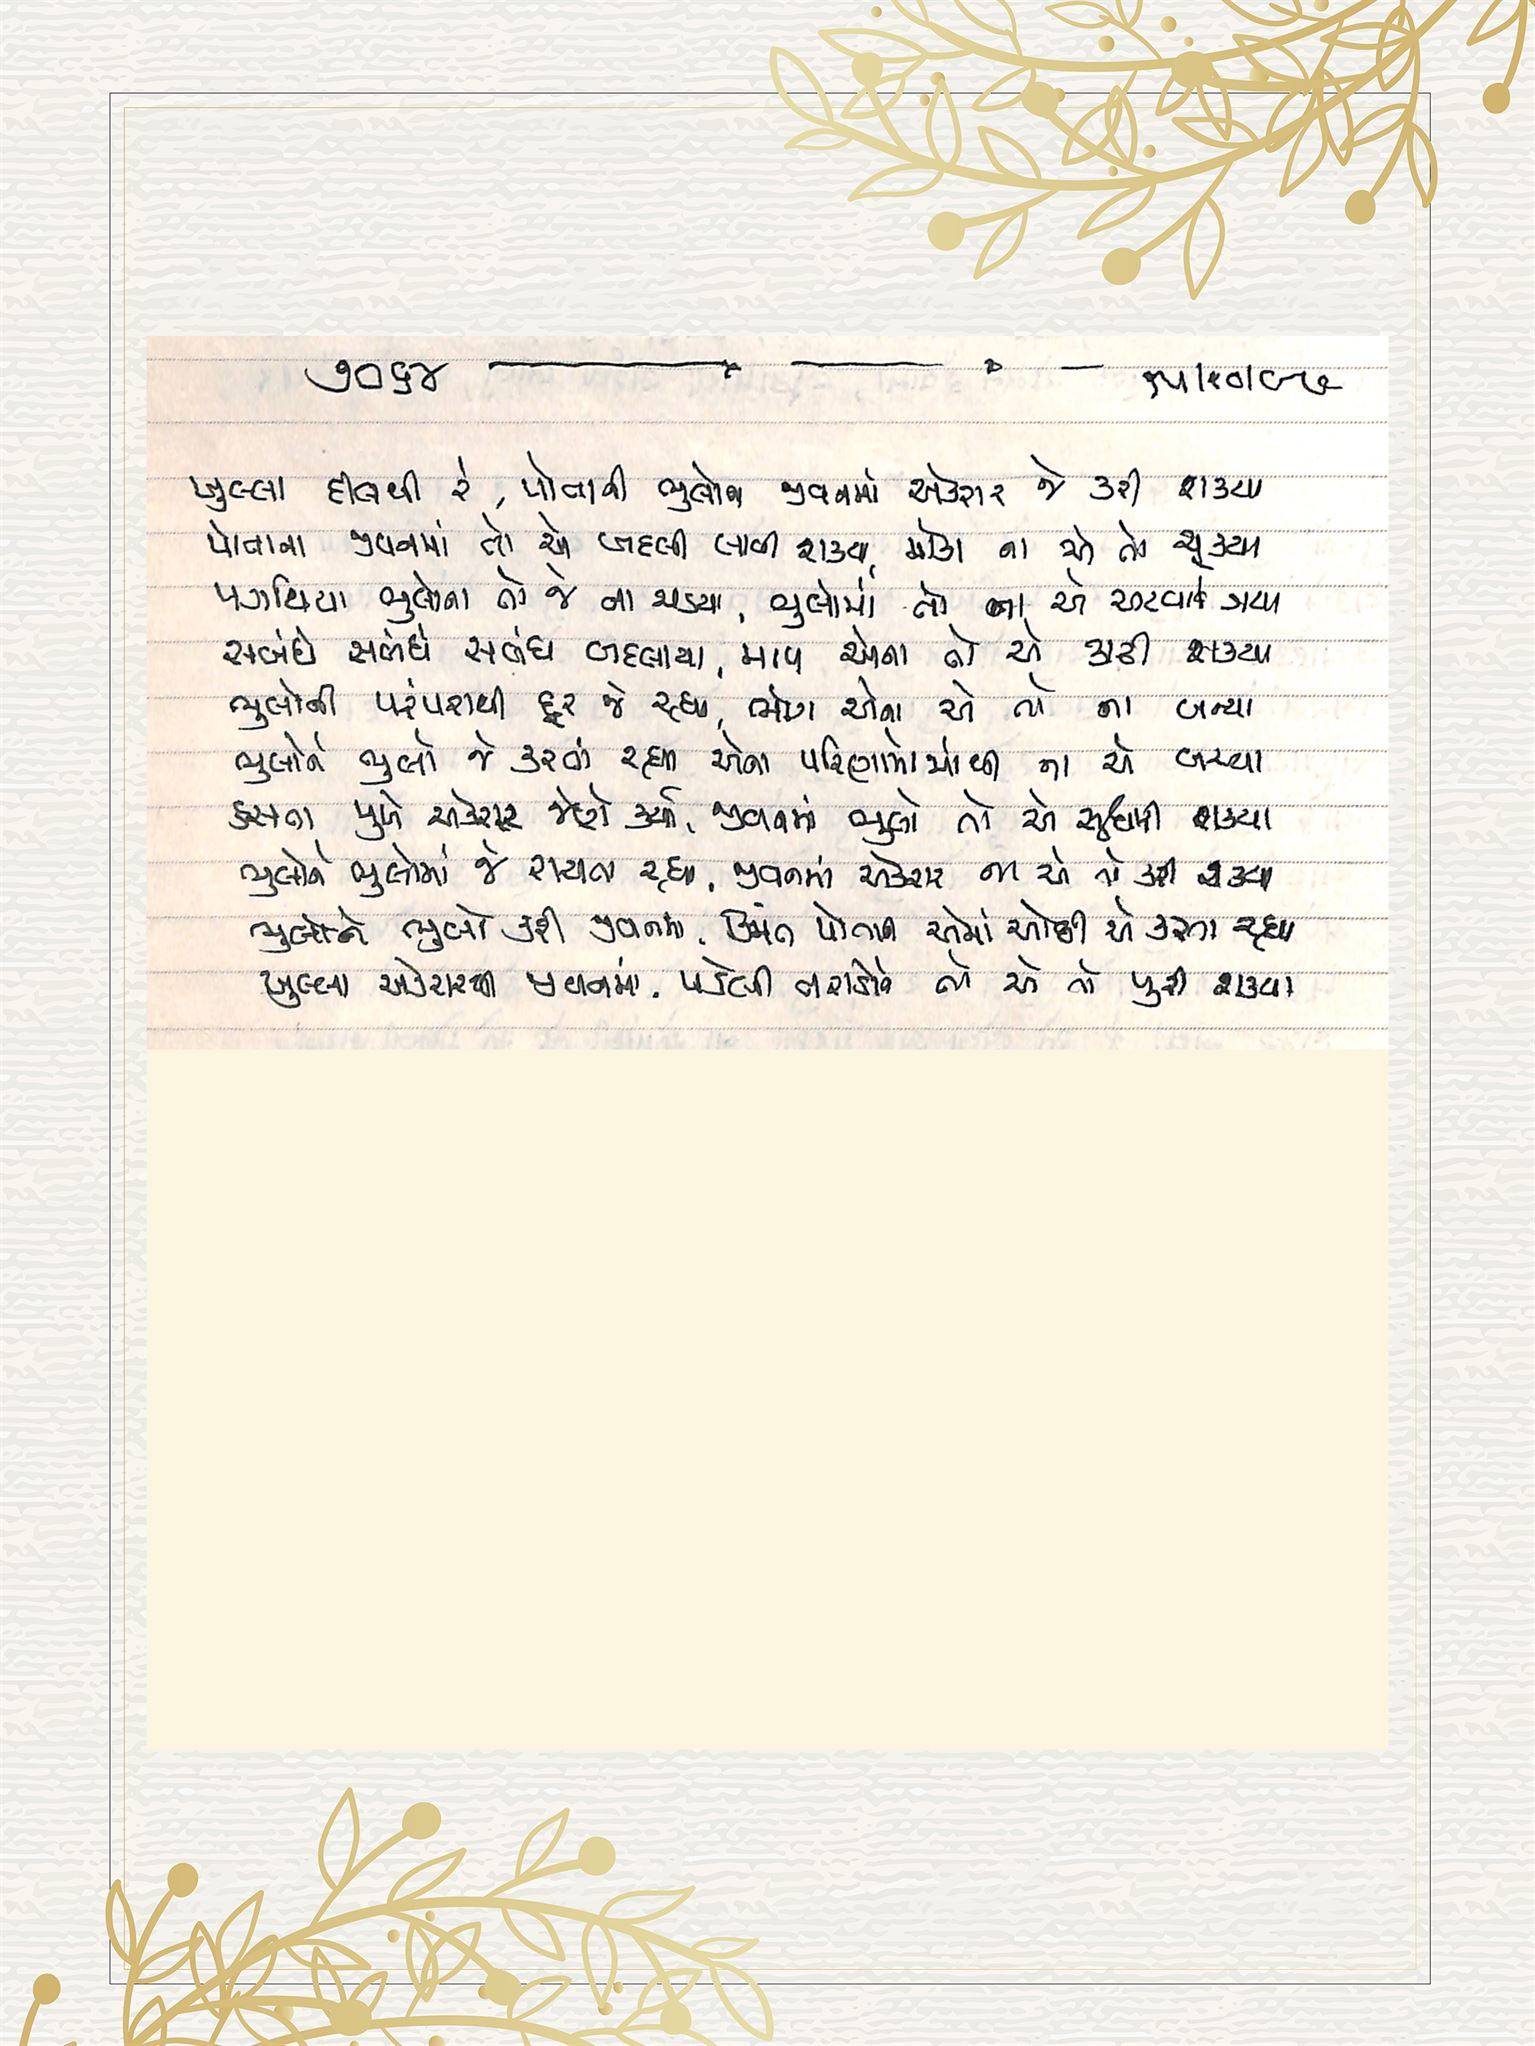 ૭૦૬૪
ખુલ્લા દીલથી રે, પોતાની ભુલોનો જીવનમાં એકરાર જે કરી શક્યા
પોતાના જીવનમાં તો એ બદલી લાવી શક્યા, મોકા ના એ તો ચૂક્યા
પગથિયા ભુલોના તો જે ના ચડયા, ભુલોમાં તો ના એ અટવાઈ ગયા
સબંધે સબંધે સબંધ બદલાયા, માપ એના તો એ કાઢી શક્યા
ભુલોની પરંપરાથી દૂર જે રહ્યા, ભોગ એના એ તો ના બન્યા
ભુલોને ભુલો જે કરતાં રહ્યા એના પરિણામોમાંથી ના એ બચ્યા
હસતા મુખે એકરાર જેણે કર્યો, જીવનમાં ભુલો તો એ સુધારી શક્યા
ભુલોને ભુલોમાં જે રાચતા રહ્યા, જીવનમાં એકરાર ના એ તો કરી શક્યા
ભુલોને ભુલો કરી જીવનમાં, કિંમત પોતાની એમાં ઓછી એ કરતા રહ્યા
ખુલ્લા એકરારથી જીવનમાં, પડેલી તરાડોને તો એ તો પુરી શક્યા